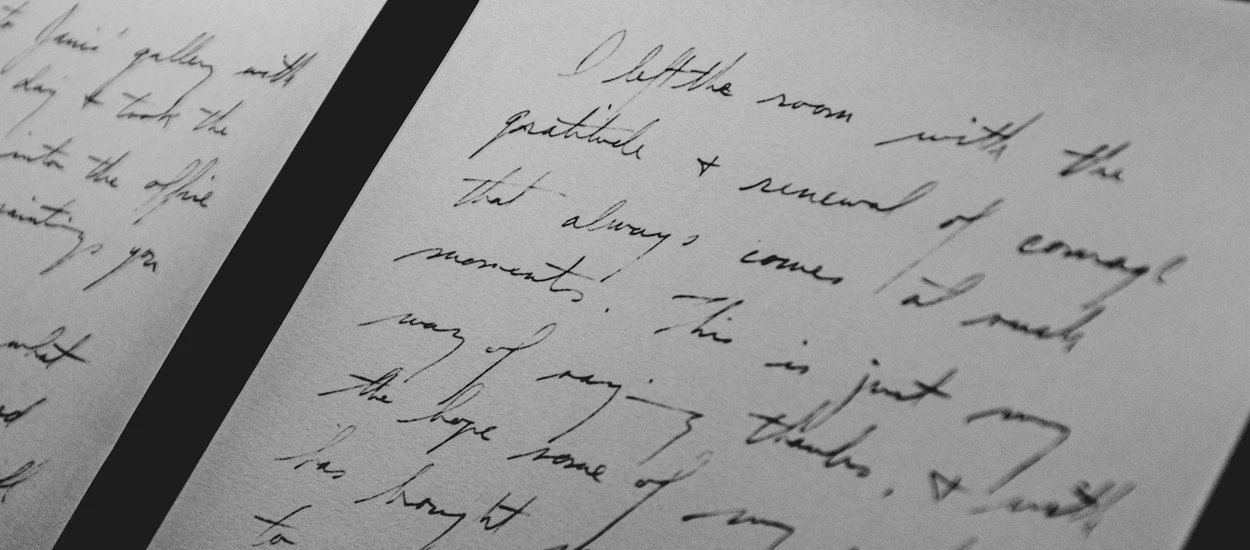 to Janis' gallery with
day & took the
into the office
paintings you
what
I left the room with the
gratitude & renewal of courage
that always comes at such
moments. This is just my
way of saying thanks, & with
the hope some of my
has brought
to